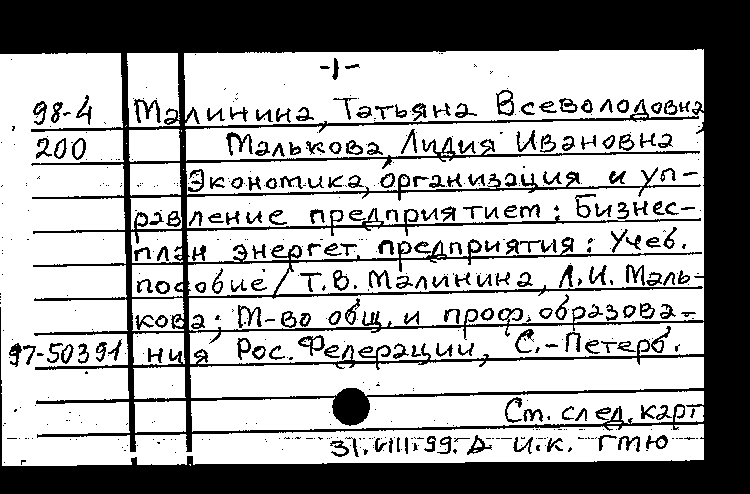 -1-
98-4 Малинина, Татьяна Всеволодовна,
200 Малькова, Лидия Ивановна
Экономика, организация и уп-
равление предприятием: Бизнес-
план энергет. предприятия: Учеб.
пособие / Т.В. Малинина, Л.И. Маль-
кова; М-во общ. и проф. образова-
97-50391 ния Рос. Федерации, С.-Петерб.
См. след. карт
31.VIII.99. И.К. ГМЮ